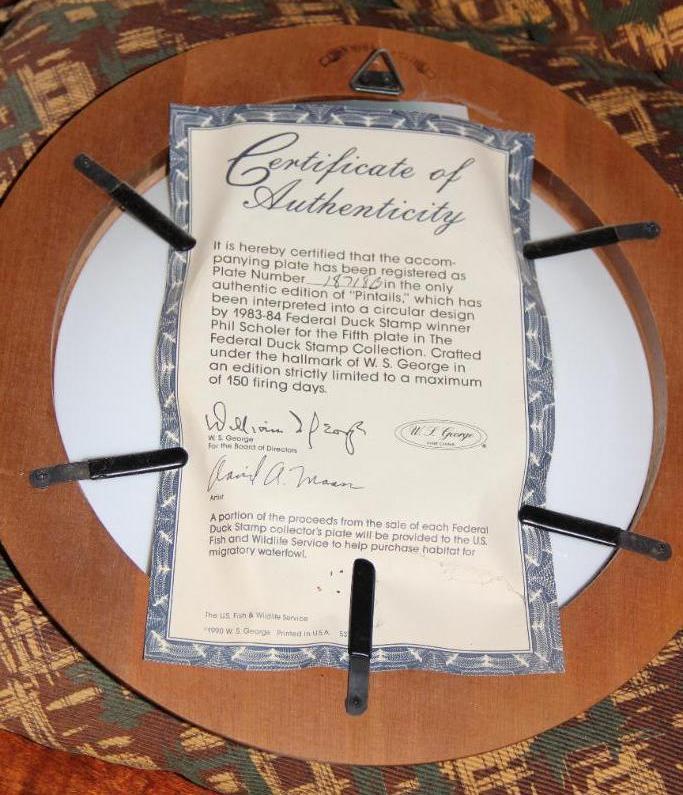 Certificate of
Authenticity
It is hereby certified that the accom-
panying plate has been registered as
Plate Number 18718B in the only
authentic edition of "Pintails," which has
been interpreted into a circular design
by 1983-84 Federal Duck Stamp winner
Phil Scholer for the Fifth plate in The
Federal Duck Stamp Collection. Crafted
under the hallmark of W. S. George in
an edition strictly limited to a maximum
of 150 firing days.
William S George
W. S. George
For the Board of Directors
W. S. George
FINE CHINA
David A. Maass
Artist
A portion of the proceeds from the sale of each Federal
Duck Stamp collector's plate will be provided to the U.S.
Fish and Wildlife Service to help purchase habitat for
migratory waterfowl.
The U.S. Fish & Wildlife Service
©1990 W. S. George Printed in U.S.A.